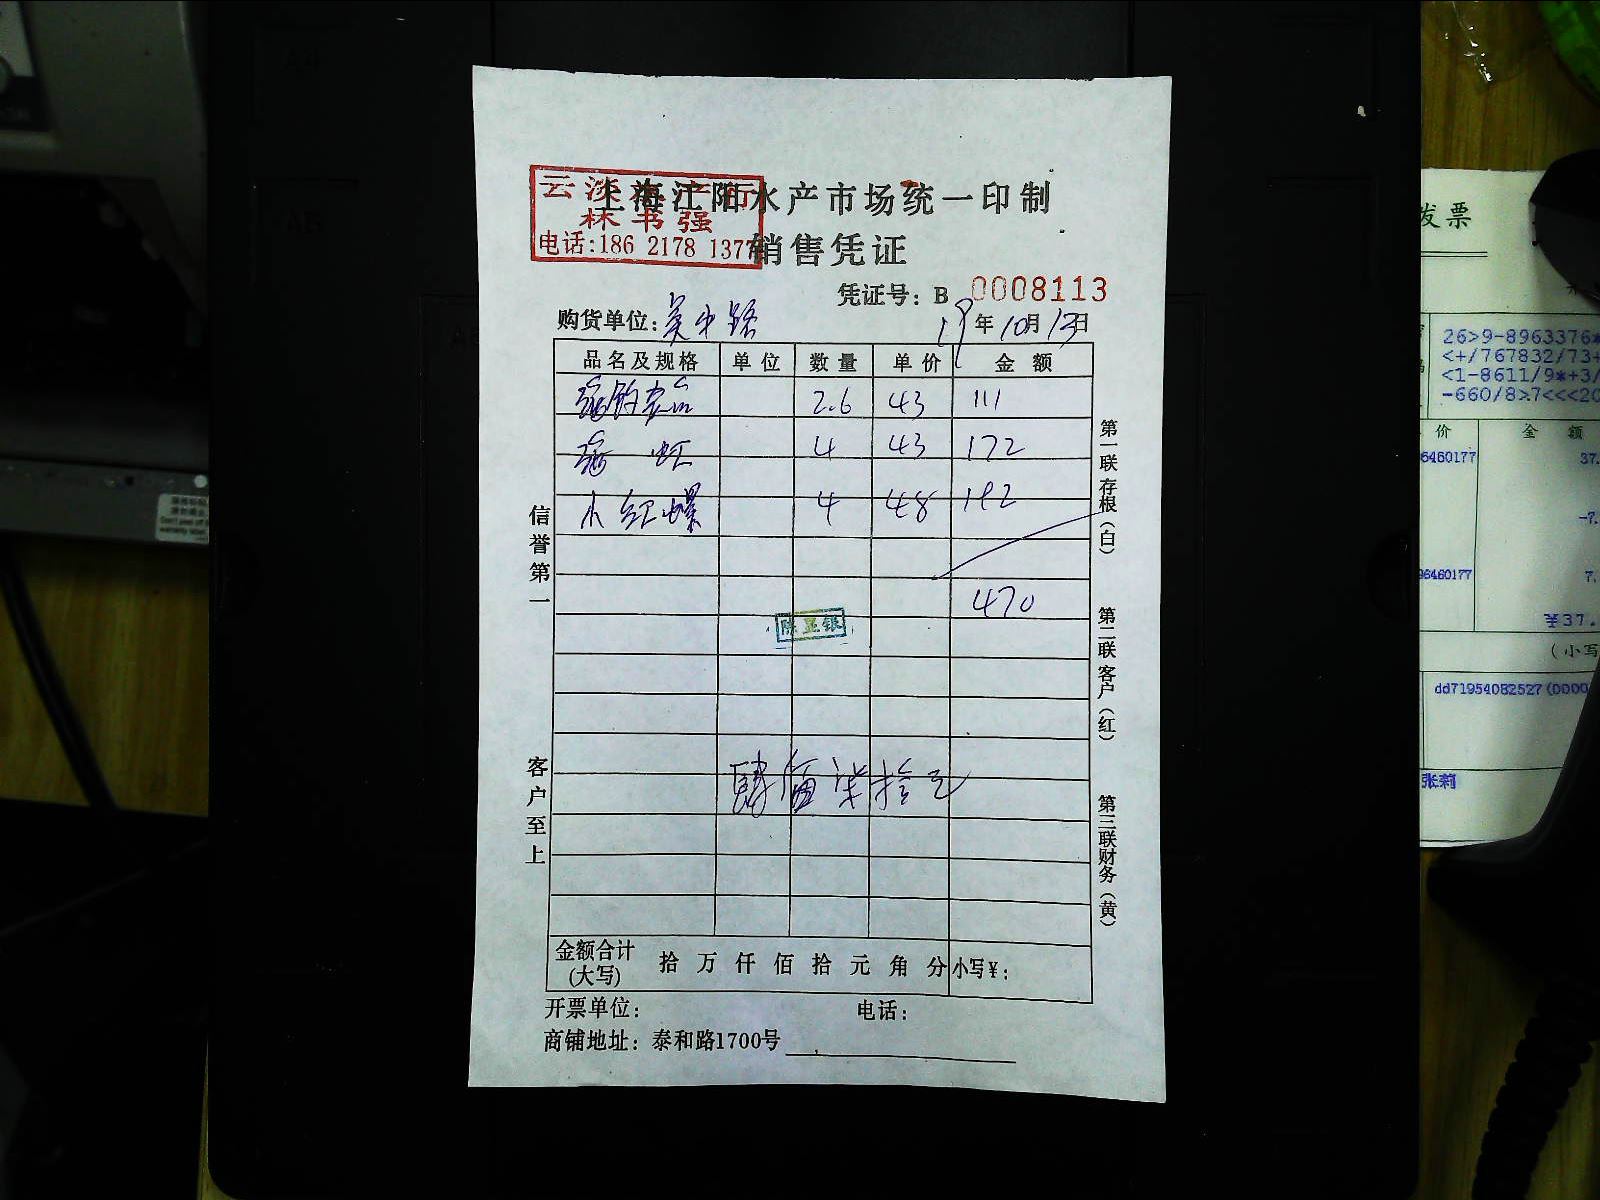 云淡水产行
林书强
电话:186 2178 1377
上海江阳水产市场统一印制
销售凭证
凭证号：B 0008113
购货单位：吴中路 19年10月13日
品名及规格 单位 数量 单价 金额
2.6 43 111
4 43 172
小红螺 4 48 192
470
陈显银
肆佰柒拾元
金额合计(大写) 拾 万 仟 佰 拾 元 角 分 小写¥：
开票单位： 电话：
商铺地址：泰和路1700号
信誉第一
客户至上
第一联存根（白）
第二联客户（红）
第三联财务（黄）
发票
26>9-8963376*
<+/767832/73+
<1-8611/9*+3/
-660/8>7<<<20
价 金 额
6460177 37.
-7.
96460177 7.
¥37.
（小写
dd71954082527(0000
张莉